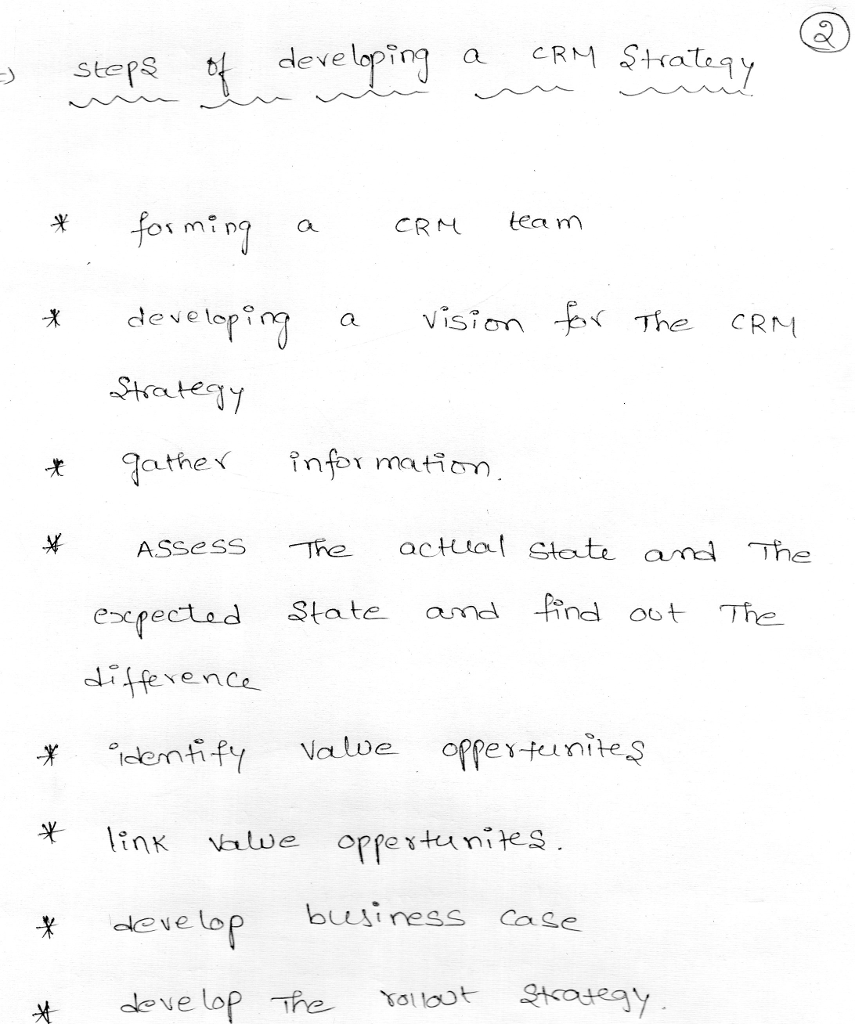 ②
=) steps of developing a CRM Strategy
* forming a CRM team
* developing a vision for The CRM
Strategy
* gather information.
* ASSESS The actual state and The
expected State and find out The
difference
* identify value oppertunites
* link value oppertunites.
* develop business case
* develop The rollout Strategy.